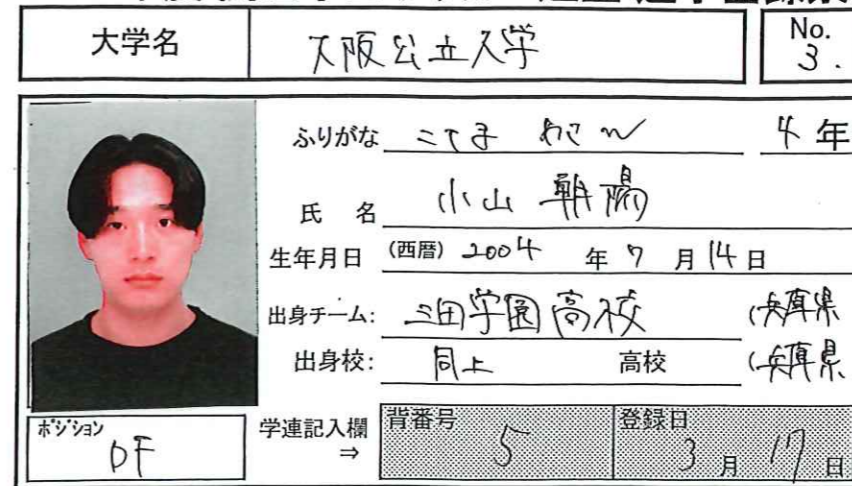 大学名 大阪公立大学 No. 3.
ふりがな こやま 4年
氏 名 小山 朝陽
生年月日 (西暦) 2004 年 7 月 14 日
出身チーム: 三田学園高校 (兵庫県
出身校: 同上 高校 (兵庫県
ポジション DF 学連記入欄 ⇒ 背番号 5 登録日 3 月 17 日